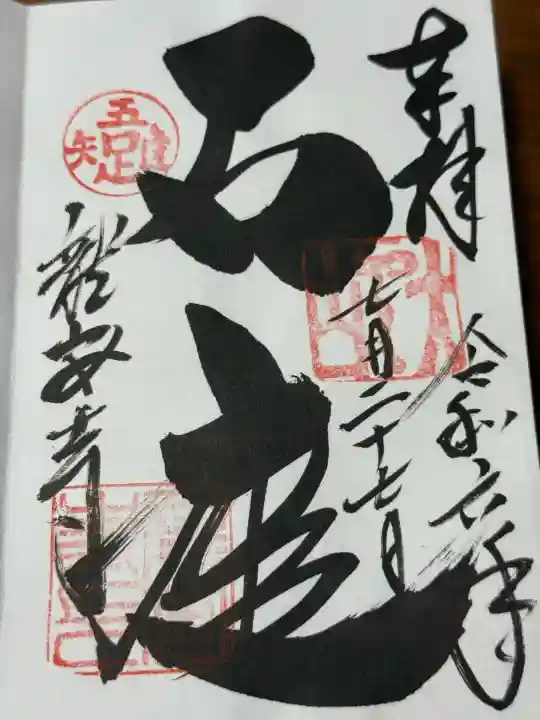 奉拝
令和六年
七月二十七日
石庭
龍安寺
吾唯足知